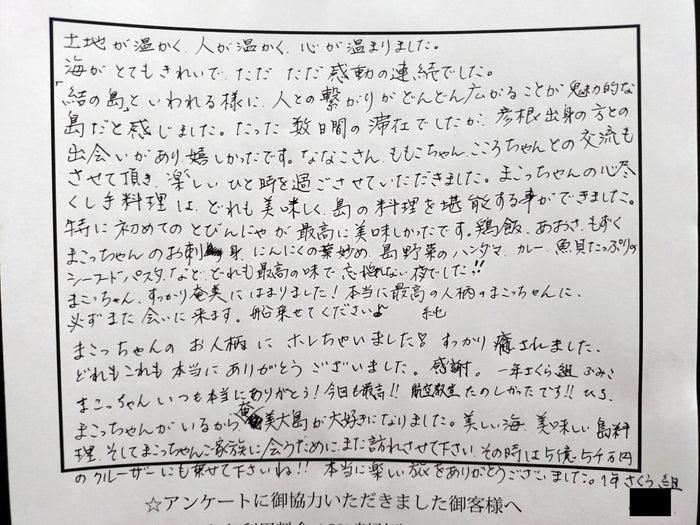 土地が温かく、人が温かく、心が温まりました。
海がとてもきれいで、ただただ感動の連続でした。
「結の島」といわれる様に、人との繋がりがどんどん広がることが魅力的な
島だと感じました。たった数日間の滞在でしたが、彦根出身の方との
出会いがあり、嬉しかったです。ななこさん、ももこちゃん、こころちゃんとの交流も
させて頂き、楽しいひと時を過ごさせていただきました。まこっちゃんの心尽
くし手料理は、どれも美味しく、島の料理を堪能する事ができました。
特に初めてのとびんにゃが最高に美味しかったです。鶏飯、あおさ、もずく
まこっちゃんのお刺身、にんにくの葉炒め、島野菜のハンダマ、カレー、魚貝たっぷりの
シーフードパスタ、などどれも最高の味で忘れられない夜でした!!
まこっちゃん、すっかり奄美にはまりました!本当に最高の人柄のまこっちゃんに、
必ずまた会いに来ます。船乗せてくださいよ 純
まこっちゃんのお人柄にホレちゃいました♡すっかり癒されました、
どれもこれも本当にありがとうございました。感謝。一年さくら組 ふみこ
まこっちゃんいつも本当にありがとう!今日も最高!!航空教室たのしかったです!!ひろ、
まこっちゃんがいるから奄美大島が大好きになりました。美しい海、美味しい島料
理、そしてまこっちゃんご家族に会うために、また訪れさせて下さい。その時は5億5千万円
のクルーザーにも乗せて下さいね!!本当に楽しい旅をありがとうございました。1年さくら組
☆アンケートに御協力いただきました御客様へ